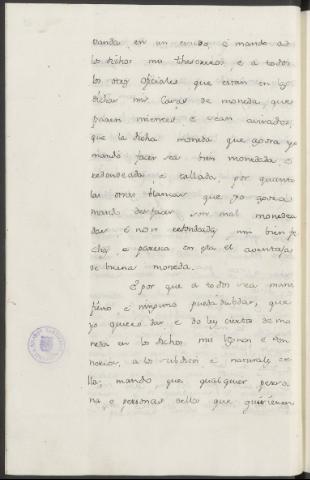 vanda en un escudo, e mando a
los dichos mis thesoreros, e a todos
los otros oficiales que están en las
dichas mis Casas de moneda, que
paren mientes e sean avisados,
que la dicha moneda que agora yo
mando facer sea bien monedada e
redondeada e tallada, por quanto
las otras blancas que yo agora
mando desfacer, son mal moneda
das e non redondas, nin bien fe
chas, e paresca en esta el aventaja
de buena moneda.
E por que a todos sea mani
fiesto e ninguno pueda dubdar, que
yo quiero dar, e do ley cierta de mo
neda en los dichos mis Regnos e Sen
norios, a los subditos e naturales de
llos; mando que qualquier perso
na, e personas dellos que quisieren